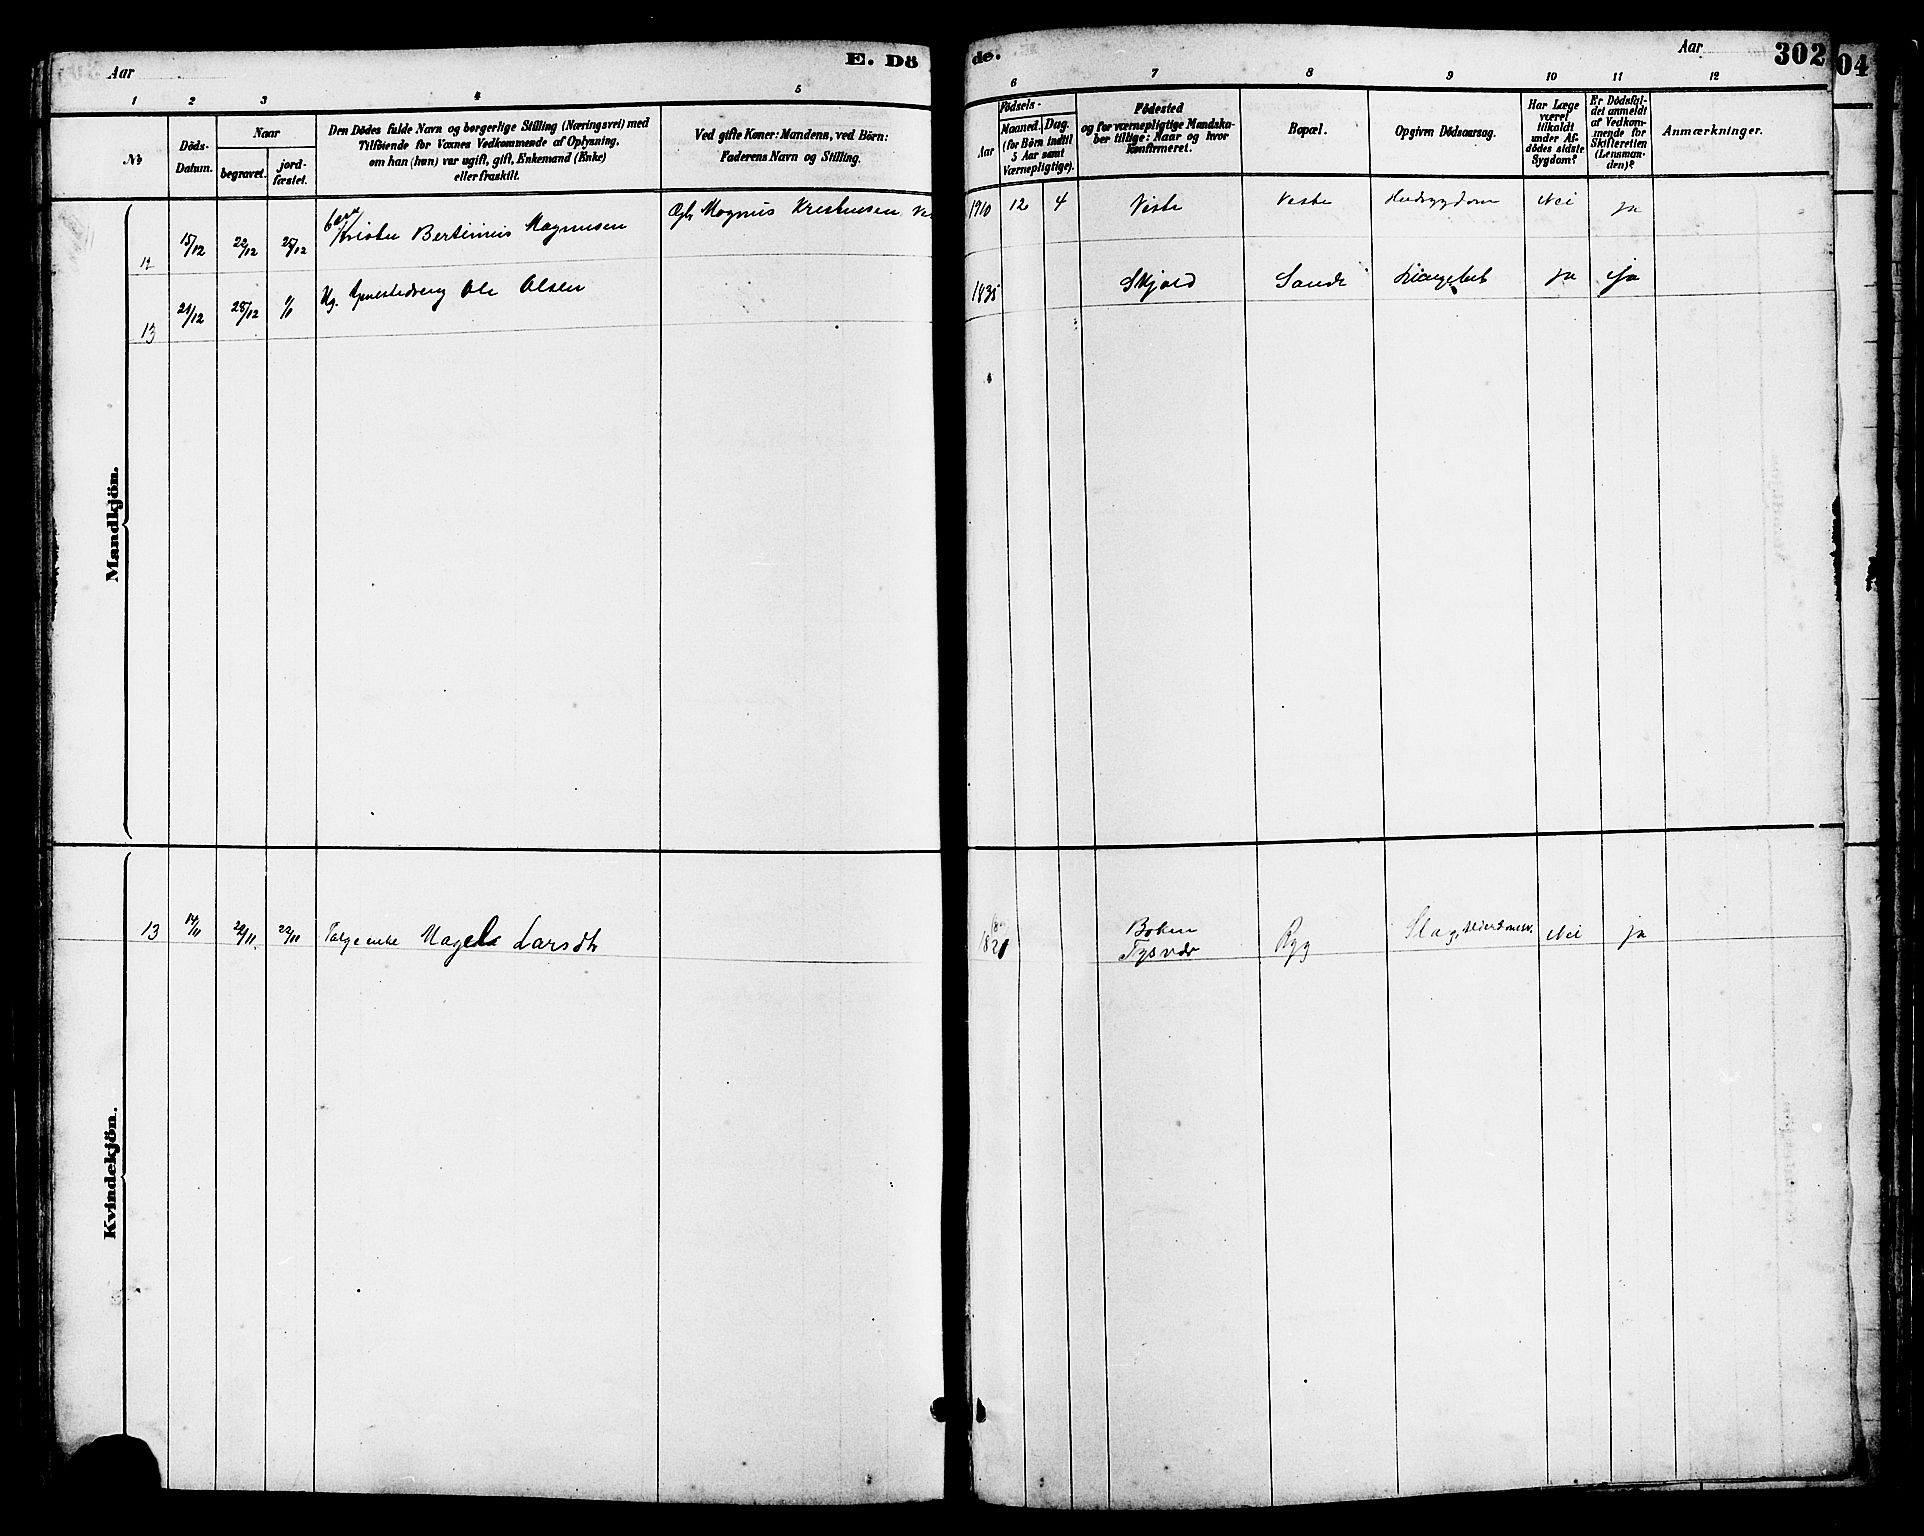 Aar
E. Dö
de.
Aar
302
04
1 2 3 4 5 6 7 8 9 10 11 12
No
Döds-
Datum.
Naar
begravet.
jord-
fæstet.
Den Dödes fulde Navn og borgerlige Stilling (Næringsvei) med
Tilföiende for Voxnes Vedkommende af Oplysning,
om han (hun) var ugift, gift, Enkemand (Enke)
eller fraskilt.
Ved gifte Koner: Mandens, ved Börn:
Faderens Navn og Stilling.
Födsels-
Aar
Maaned. Dag.
(for Börn indtil
5 Aar samt
Værnepligtige).
Födested
og for værnepligtige Mandska-
ber tillige: Naar og hvor
konfirmeret.
Bopæl.
Opgiven Dödsaarsag.
Har Læge
været
tilkaldt
under Af-
dödes sidste
Sygdom?
Er Dödsfal-
det anmeldt
af Vedkom-
mende for
Skifteretten
(Lensman-
den)?
Anmærkninger.
Mandkjön.
12 15/12 22/12 Kristen Bertinius Magnusen Magnus Kristensen 1910 12 4 Neste Nei ja
13 21/12 28/12 1/1 Kg. Ole Olsen 1835 Skjold Sande ja ja
Kvindekjön.
13 14/11 22/11 22/11 Larsdtr 1821 Boken
Tysvær Ryg Slag, Nei ja